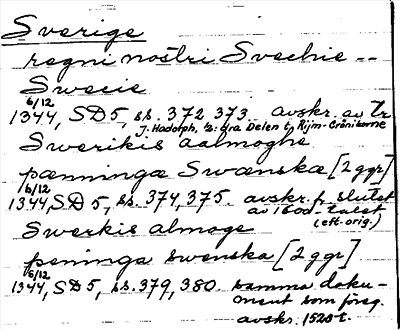 Sverige
regni nostri Svechie --
Swecie
6/12
1344, SD5, ss. 372 373. avskr. av tr
J. Hadorph, 2:dra Delen t. Rijm-Crönikorne
Swerikis aalmoghe
pæninga Swænska [2 ggr]
6/12
1344, SD5, ss. 374, 375. avskr. fr. slutet
av 1600-talet
(eft. orig.)
Swerkis almoge
peninga swenska [2 ggr]
6/12
1344, SD5, ss. 379, 380. samma doku-
ment som föreg.
avskr. 1520 t.